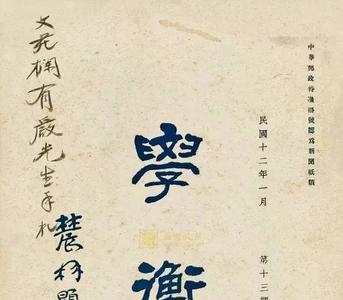 中華郵政特准掛號認爲新聞紙類
民國十二年一月　第十三期
學衡
文苑欄有嚴先生手札